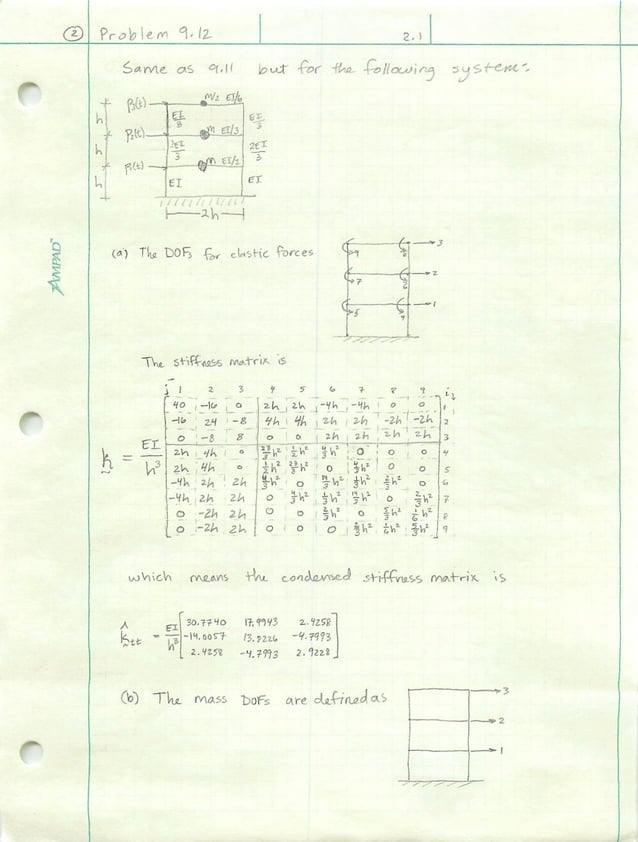 ② Problem 9.12 2.1
Same as 9.11 but for the following system:
h P3(t) m/2 EI/6
EI/3 EI/3
h P2(t) m EI/3
2EI/3 2EI/3
h P1(t) m EI/2
EI EI
2h
(a) The DOFs for elastic forces
9 8 3
7 6 2
5 4 1
AMPAD™
The stiffness matrix is
j 1 2 3 4 5 6 7 8 9 i↓
40 -16 0 2h 2h -4h -4h 0 0 1
-16 24 -8 4h 4h 2h 2h -2h -2h 2
0 -8 8 0 0 2h 2h 2h 2h 3
k = EI/h³ 2h 4h 0 23/3h² 1/2h² 4/3h² 0 0 0 4
2h 4h 0 1/2h² 23/3h² 0 4/3h² 0 0 5
-4h 2h 2h 4/3h² 0 17/3h² 1/3h² 2/3h² 0 6
-4h 2h 2h 0 4/3h² 1/3h² 17/3h² 0 2/3h² 7
0 -2h 2h 0 0 2/3h² 0 5/3h² 1/6h² 8
0 -2h 2h 0 0 0 2/3h² 1/6h² 5/3h² 9
which means the condensed stiffness matrix is
30.7740 17.9943 2.4258
k̂tt = EI/h³ -14.0057 13.8226 -4.7993
2.4258 -4.7993 2.9228
(b) The mass DOFs are defined as
3
2
1